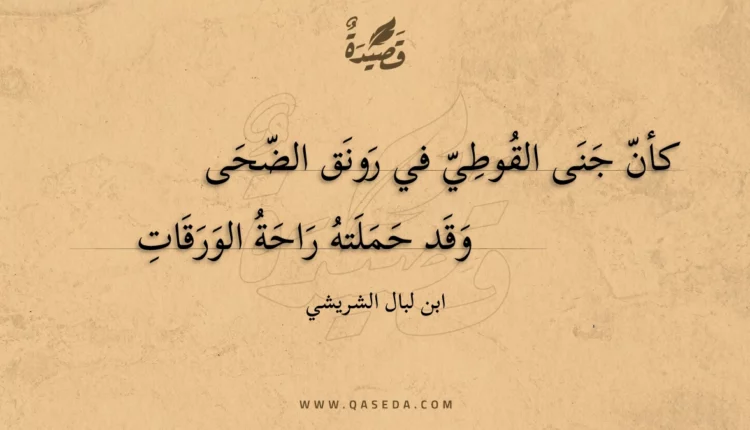 قَصِيدَةٌ
كأنّ جَنَى القُوطِيّ في رَونَق الضّحَى
وَقَد حَمَلَتهُ رَاحَةُ الوَرَقَاتِ
ابن لبال الشريشي
WWW.QASEDA.COM